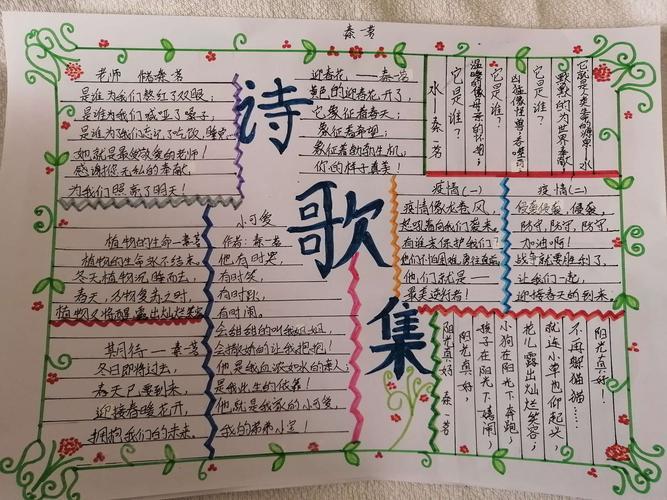 秦芳
诗歌集
老师 储秦芳
是谁为我们熬红了双眼；
是谁为我们喊哑了嗓子；
是谁为我们忘记了吃饭、睡觉
她就是最受敬爱的老师！
感谢你无私的奉献，
为我们照亮了明天！
迎春花，——秦芳
黄色的迎春花开了，
它象征着春天；
象征着希望；
象征着勃勃生机，
你的样子真美！
水——秦芳
它是谁？
温暖的像母亲的怀抱；
它是谁？
凶猛像怪兽，吞噬
它是谁？
默默的为世界奉献
它就是人类生命的源泉：水
疫情（一）
疫情像龙卷风，
起吼着向我们袭来。
有谁来保护我们？
他们不怕困难，勇往直前
他们就是——
最美逆行者！
疫情（二）
侵袭侵袭，侵袭，
防守，防守，防守，
加油啊！
战争就要胜利了，
让我们一起，
迎接春天的到来。
植物的生命—秦芳
植物的生命永不结束。
冬天植物沉睡而去，
春天，万物复苏之时，
植物又将醒露出灿烂笑容
期待—秦芳
冬日即将过去，
春天已要到来，
迎接春暖花开，
拥抱我们的未来。
小可爱
作者：秦芳
他，有时哭，
有时笑，
有时跳，
有时闹。
会甜甜的叫我姐姐，
会撒娇的让我抱抱！
他是我血浓如水的亲人；
是我此生的依靠！
他就是我家的小可爱，
我的弟弟小宝！
阳光真好 秦芳
阳光真好，
孩子在阳光下嬉闹
小狗在阳光下奔跑，
花儿露出灿烂笑容；
就连小草也仰起头，
不再躲猫猫……
阳光真好！